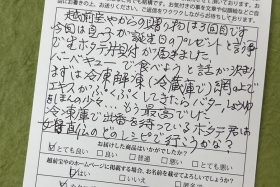 越前宝やからの贈り物は3回目です
今回は息子が誕生日のプレゼントと言う事
でホタテ片貝付が届きました。
バーベキューで食べようと話が決まり
まずは冷凍解凍(冷蔵庫で)網の上で
エキスがふくふくしてきたらバターしょうゆ
をほんの少々、もう最高でした。
冷凍庫で出番を待っているホタテ君は
どのレシピで行こうかな?
お届けした商品はいかがでしたか?
とても良い 良い 普通 悪い とても悪い
越前宝やのホームページに掲載する場合、お名前を載せてもよろしいでしょうか?
はい いいえ